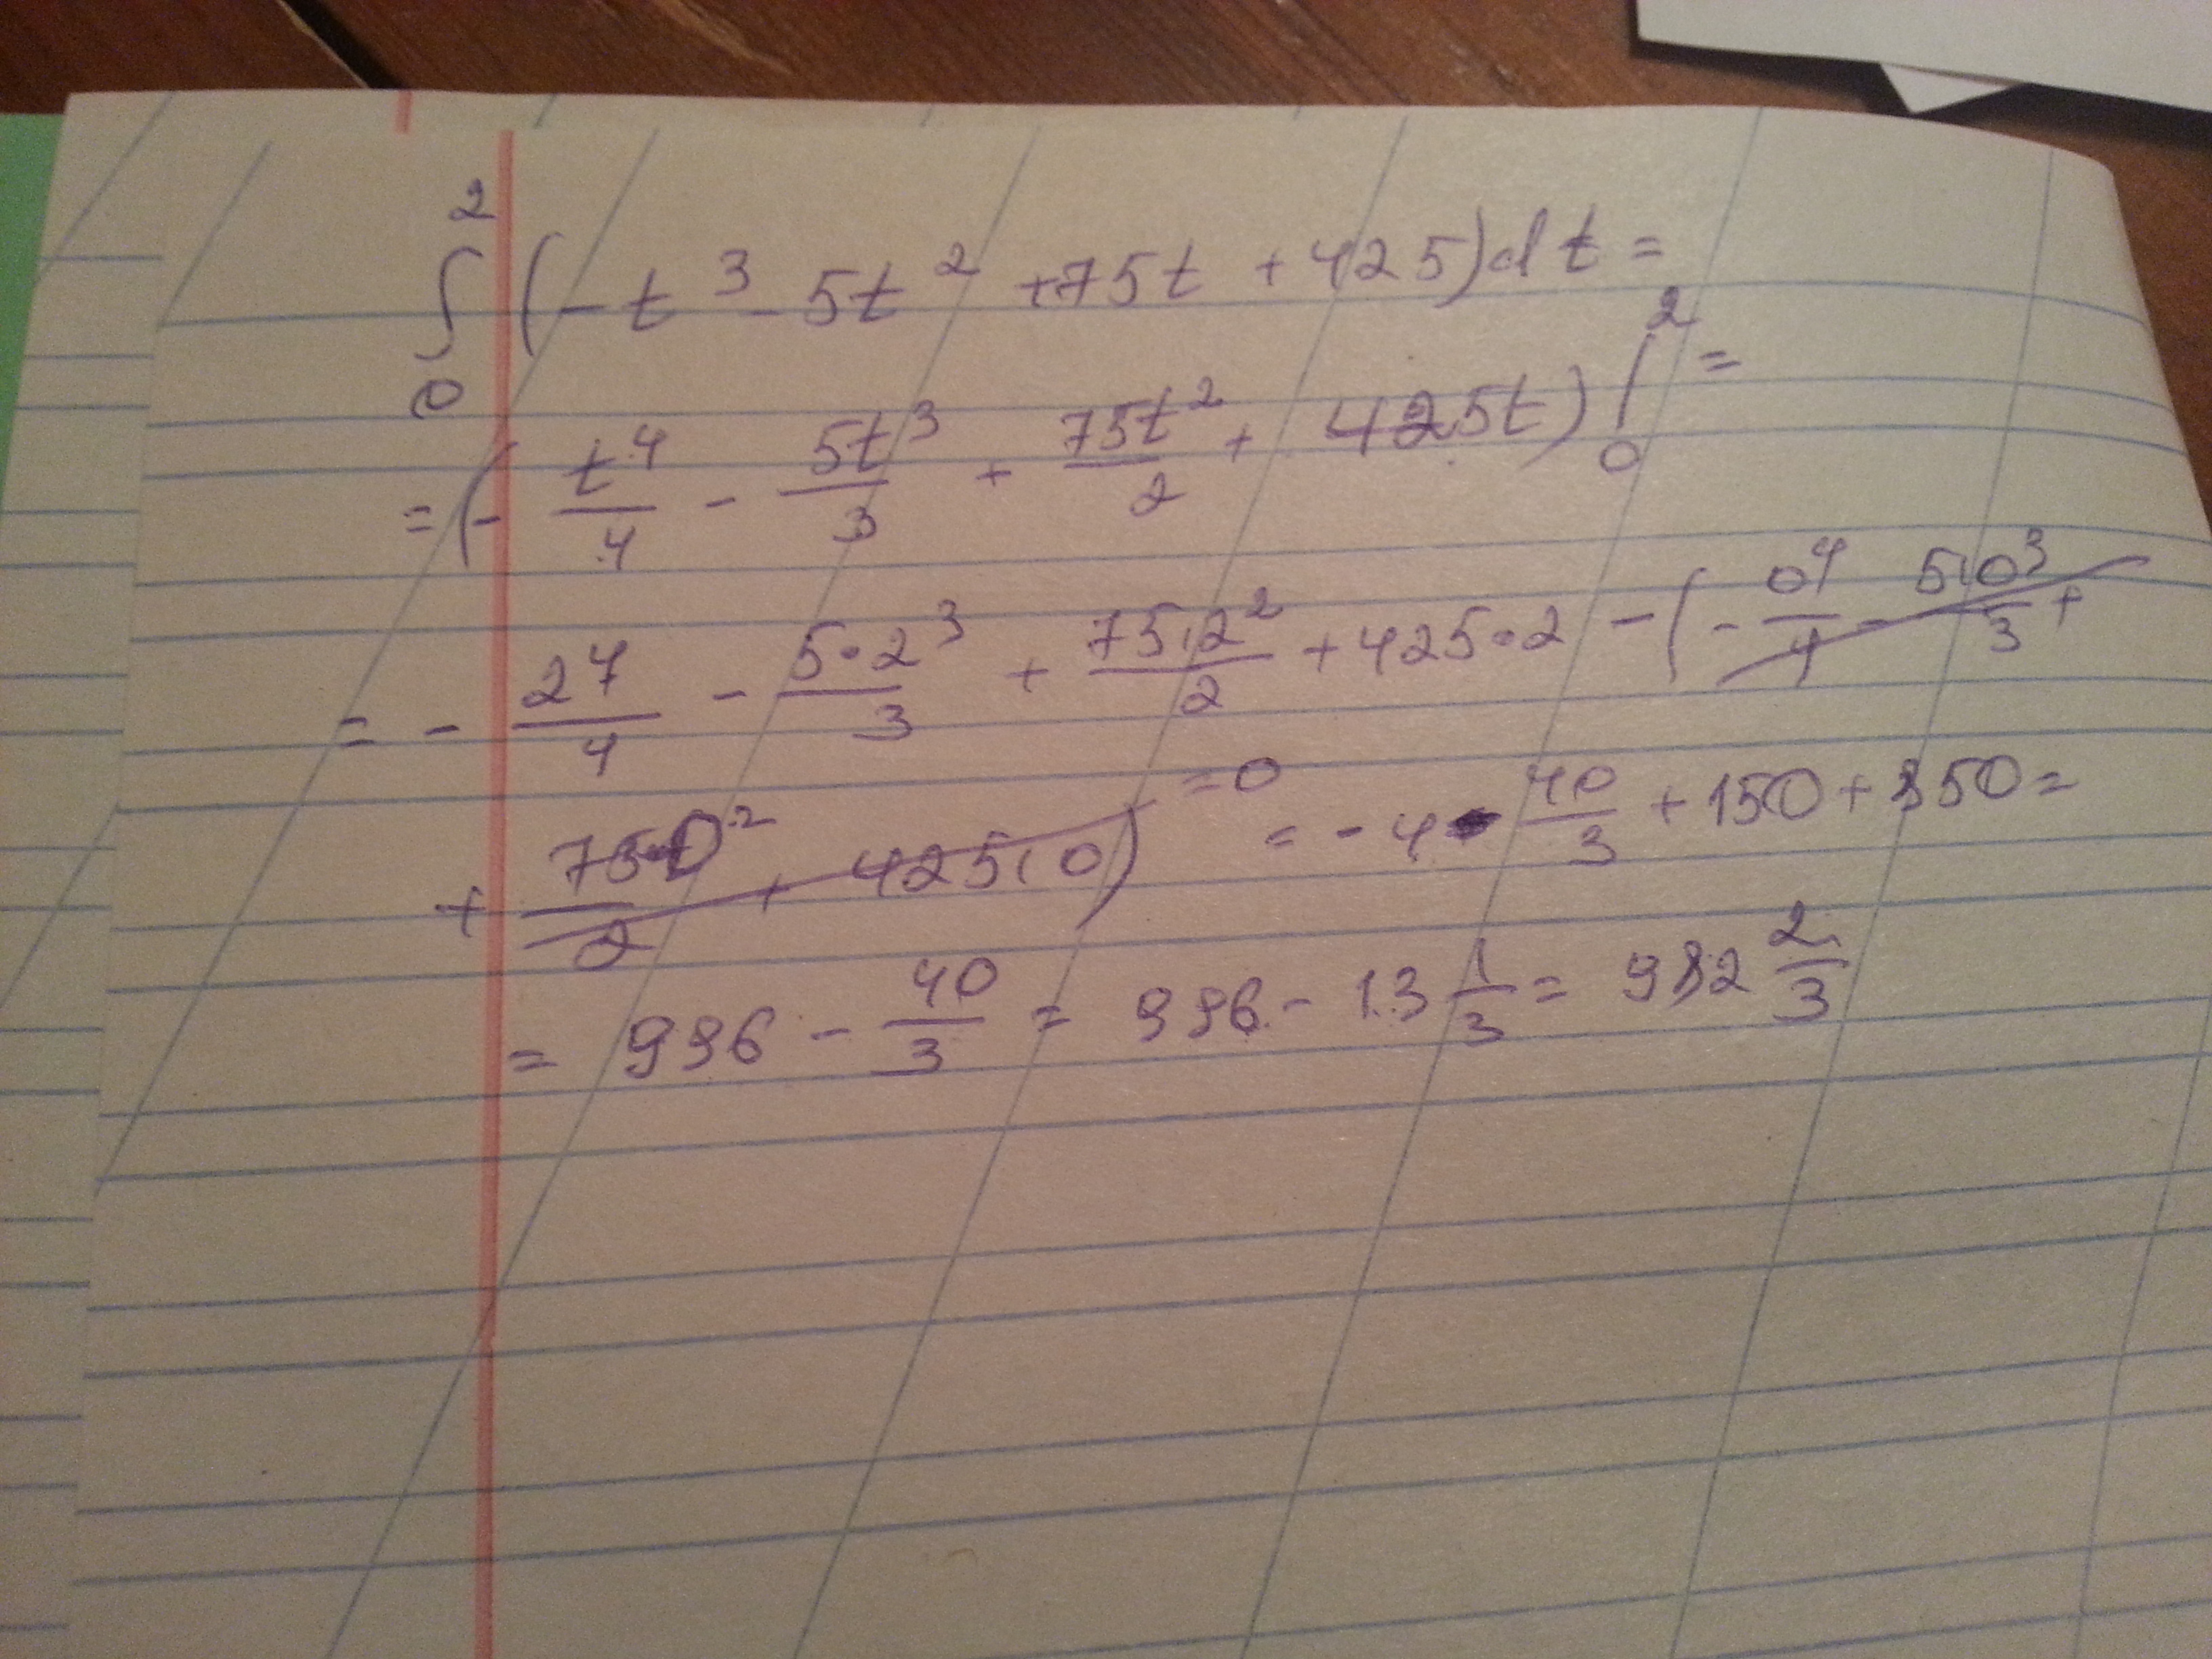 ∫₀² (-t³ - 5t² + 75t + 425)dt =
= (- t⁴/4 - 5t³/3 + 75t²/2 + 425t) |₀² =
= - 2⁴/4 - 5·2³/3 + 75·2²/2 + 425·2 - (- 0⁴/4 - 5·0³/3 +
+ 75·0²/2 + 425·0) = 0 = -4 - 40/3 + 150 + 850 =
= 996 - 40/3 = 996 - 13 1/3 = 982 2/3